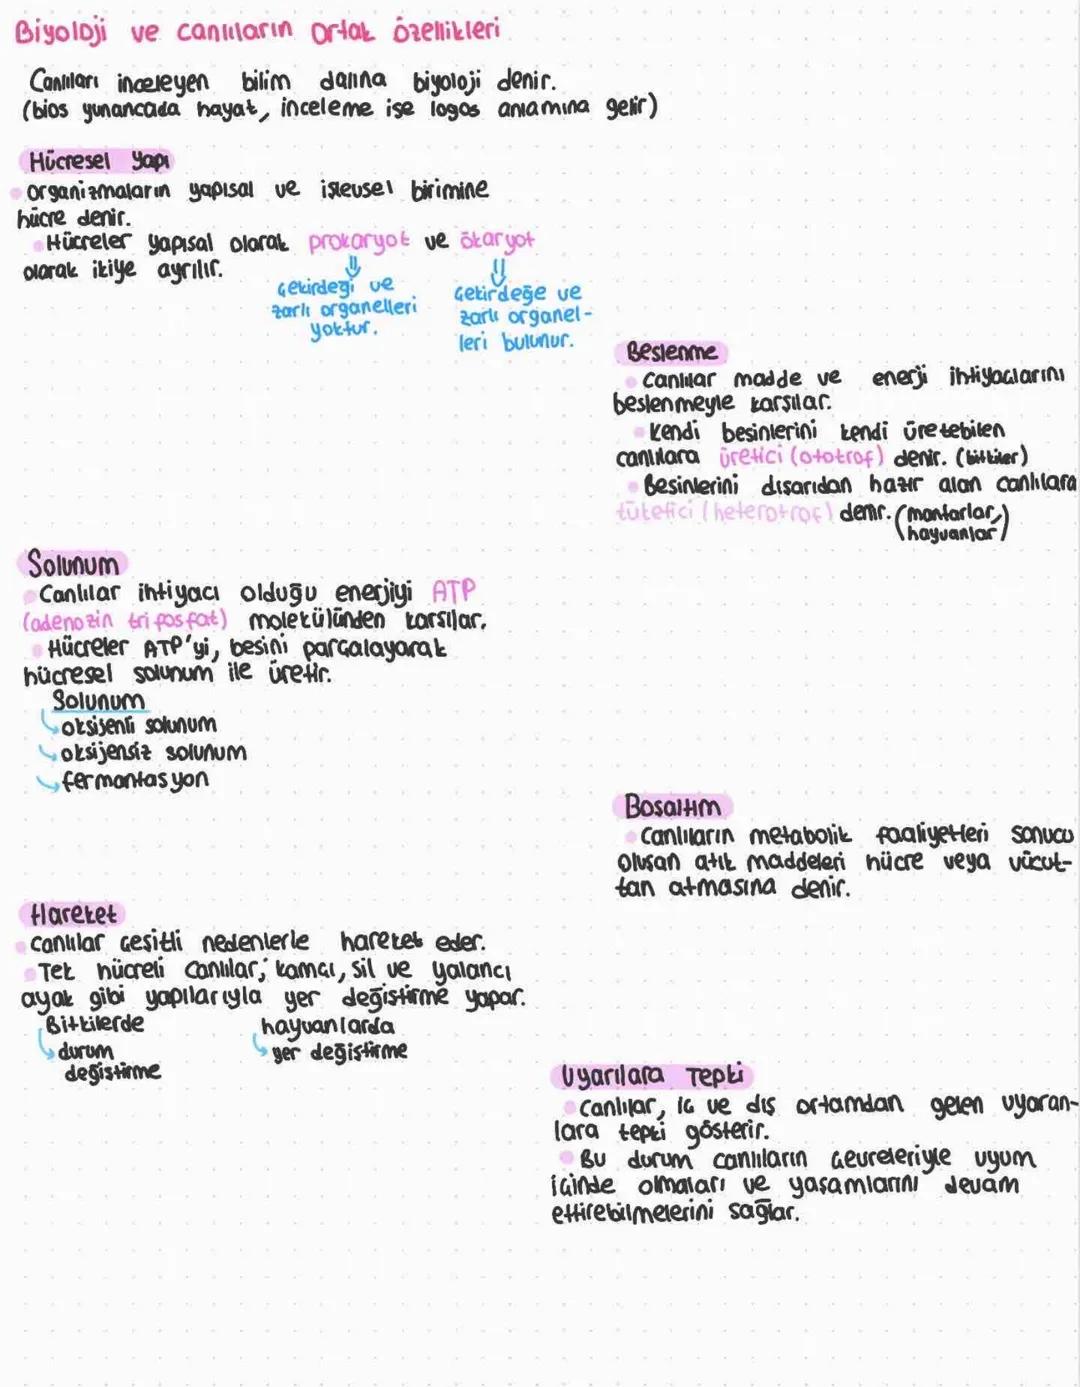 Biyoloji ve canlıların ortak özellikleri
Canlıları inceleyen bilim dalına biyoloji denir.
(bios yunancada hayat, inceleme ise logos anlamına gelir)
Hücresel yapı
organizmaların yapısal ve işlevsel birimine
hücre denir.
Hücreler yapısal olarak prokaryot ve ökaryot
olarak ikiye ayrılır.
çekirdeği ve
zarlı organelleri
yoktur.
çekirdeğe ve
zarlı organel-
leri bulunur.
Beslenme
Canlılar madde ve enerji ihtiyaçlarını
beslenmeyle karşılar.
Kendi besinlerini kendi üretebilen
canlılara üretici (ototrof) denir. (bitkiler)
Besinlerini dışarıdan hazır alan canlılara
tüketici (heterotrof) denir. (mantarlar,
hayvanlar)
Solunum
Canlılar ihtiyacı olduğu enerjiyi ATP
(adenozin trifosfat) molekülünden karşılar.
Hücreler ATP'yi, besini parçalayarak
hücresel solunum ile üretir.
Solunum
oksijenli solunum
oksijensiz solunum
fermantasyon
Boşaltım
Canlıların metabolik faaliyetleri sonucu
oluşan atık maddeleri hücre veya vücut-
tan atmasına denir.
Hareket
canlılar çeşitli nedenlerle hareket eder.
Tek hücreli canlılar; kamçı, sil ve yalancı
ayak gibi yapılarıyla yer değiştirme yapar.
Bitkilerde
durum
değiştirme
hayvanlarda
yer değiştirme
Uyarılara Tepki
Canlılar, iç ve dış ortamdan gelen uyaran-
lara tepki gösterir.
Bu durum canlıların çevreleriyle uyum
içinde olmaları ve yaşamlarını devam
ettirebilmelerini sağlar.